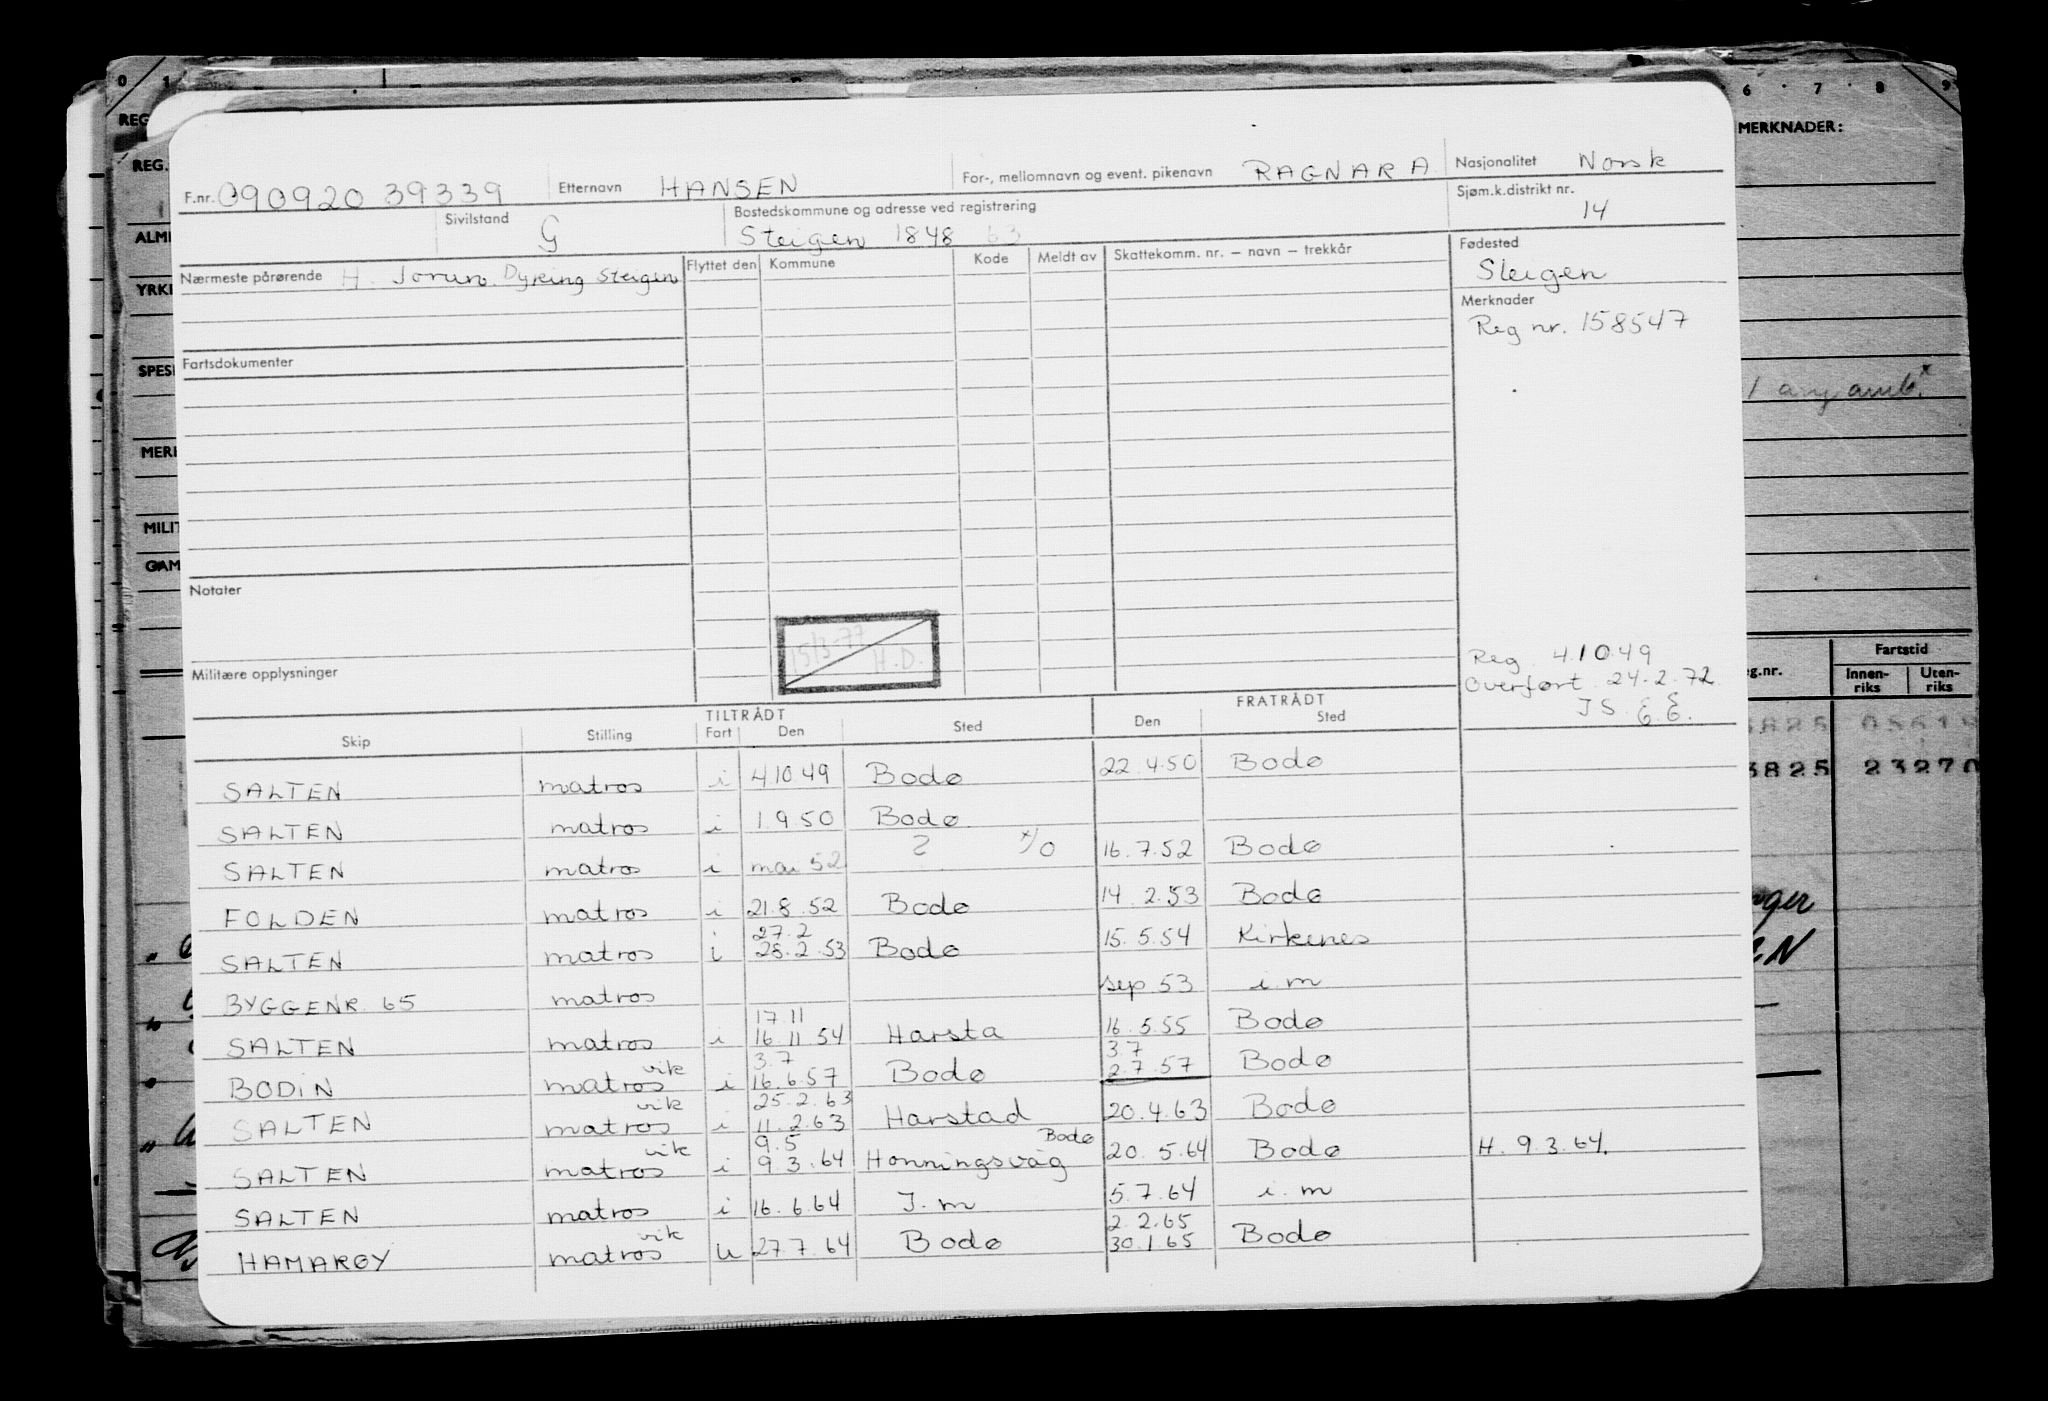 0 1 6 7 8 9
REG
REG.
ALM
YRK
SPES
MER
MILIT
GAM
MERKNADER:
F.nr. 090920 39339 Etternavn HANSEN For-, mellomnavn og event. pikenavn RAGNAR A Nasjonalitet Norsk
Sivilstand G Bostedskommune og adresse ved registrering Steigen 1848 63 Sjøm.k.distrikt nr. 14
Nærmeste pårørende H. Jorun. Dyping Steigen Flyttet den Kommune Kode Meldt av Skattekomm. nr. – navn – trekkår Fødested Steigen
Merknader
Reg nr. 158547
Fartsdokumenter
Notater
15/3-77
H.D.
Militære opplysninger
Reg 41049
Overført 24.2.72
JS E.E.
TILTRÅDT FRATRÅDT
Skip Stilling Fart Den Sted Den Sted
SALTEN matros i 41049 Bodø 22.4.50 Bodø
SALTEN matros i 1950 Bodø
SALTEN matros i mai 52 ? x/o 16.7.52 Bodø
FOLDEN matros i 21.8.52 Bodø 14.2.53 Bodø
27.2
SALTEN matros i 28.2.53 Bodø 15.5.54 Kirkenes
BYGGENR. 65 matros sep 53 i m
17.11
SALTEN matros i 16 11 54 Harsta 16.5.55 Bodø
vik 3.7 3 7
BODIN matros i 16.6.57 Bodø 2.7.57 Bodø
vik 25.2.63
SALTEN matros i 11.2.63 Harstad 20.4.63 Bodø
vik 9.5 Bodø
SALTEN matros i 9 3.64 Honningsvåg 20.5.64 Bodø H. 9.3.64.
SALTEN matros i 16.6.64 I.m 5.7.64 i.m
vik 2.2.65
HAMARØY matros u 27.7.64 Bodø 30.1.65 Bodø
g.nr. Fartstid
Innen-riks Uten-riks
3825 05614
3825 23270